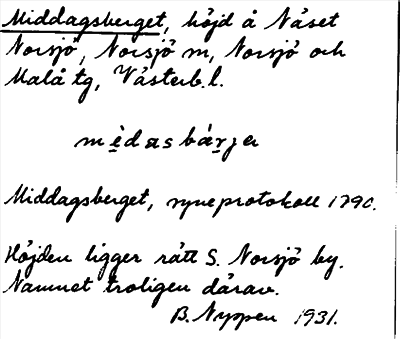 Middagsberget, höjd å Näset
Norsjö, Norsjö m, Norsjö och
Malå tg, Västerb.l.
Middagsberget, syneprotokoll 1790.
Höjden ligger rätt S. Norsjö by.
Namnet troligen därav.
B. Nyppen 1931.